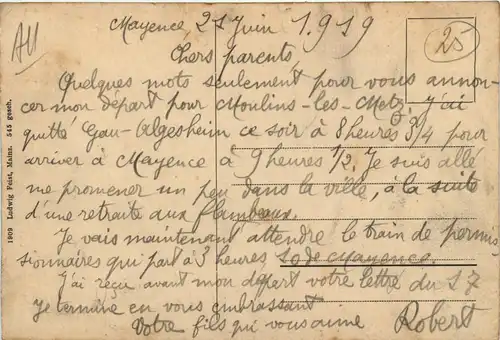 All
25
Mayence, 21 Juin 1.919
Chers parents,
Quelques mots seulement pour vous annon-
cer mon départ pour Moulins-les-Metz, j'ai
quitté Gau-Algesheim ce soir à 8 heures 3/4 pour
arriver à Mayence à 9 heures 1/2. Je suis allé
me promener un peu dans la ville, à la suite
d'une retraite aux flambeaux.
Je vais maintenant attendre le train de permis-
sionnaires qui part à 3 heures 10 de Mayence.
J'ai reçu avant mon départ votre lettre du 17
Je termine en vous embrassant
Votre fils qui vous aime Robert
1909 Ludwig Feist, Mainz. 545 gesch.